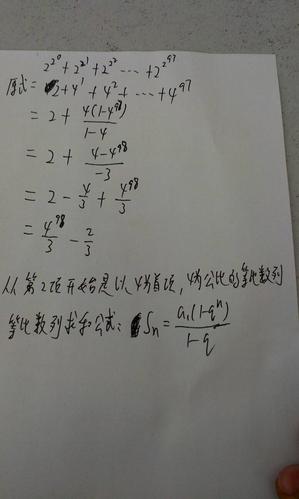 2^{2^0} + 2^{2^1} + 2^{2^2} ··· + 2^{2^{97}}
原式 = 2 + 4^1 + 4^2 + ··· + 4^{97}
= 2 + \frac{4(1-4^{98})}{1-4}
= 2 + \frac{4-4^{98}}{-3}
= 2 - \frac{4}{3} + \frac{4^{98}}{3}
= \frac{4^{98}}{3} - \frac{2}{3}
从第2项开始是以4为首项,4为公比的等比数列
等比数列求和公式: S_n = \frac{a_1(1-q^n)}{1-q}